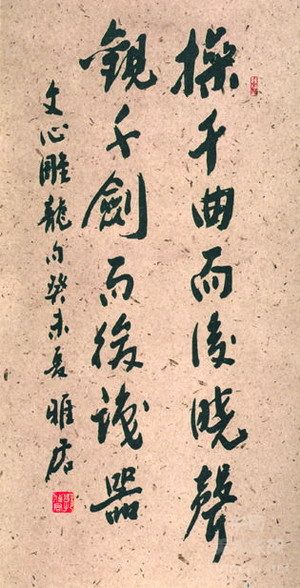 操千曲而後曉聲
觀千劍而後識器
文心雕龍句癸未夏